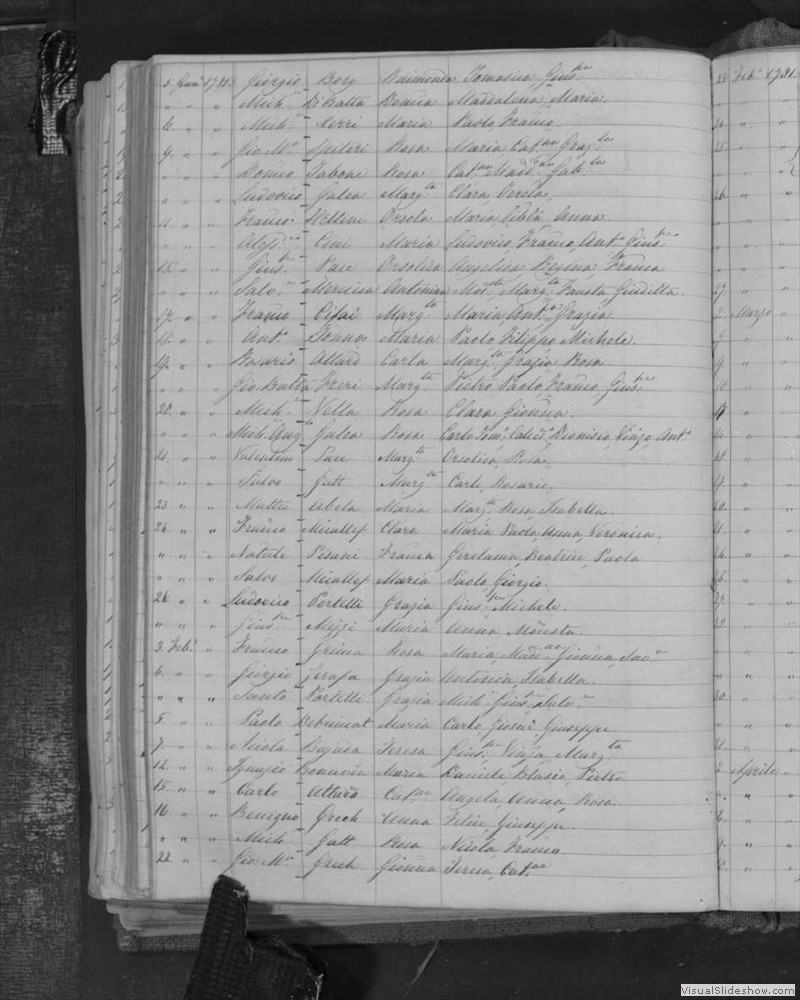 5. Genn. 1781. Giorgio Borg Raimonda Tomasica, Gius.
" " " Mich. Di Batta Bonica Maddalena, Maria.
6. " " Mich. Xerri Maria Paolo, Franco.
9. " " Gio. Ma. Spiteri Rosa Maria, Cat.na Graz.la
" " " Romeo Tabone Rosa
" " " Ludovico Galea Marg.ta Clara, Teresa
11. " " Franco. Stellini Orsola Maria, Anna
" " " Cini Maria Ludovico, Franco, Ant. Gius.
15. " " Gius. Pace Orsolica Angelica Regina, Franca
" " " Salv. Antonina Marg.ta Fausta Giuditta.
17. " " Franco Marg.ta Maria, Ant. Grazia
18. " " Ant. Tonna Maria Paolo Filippo Michele.
19. " " Rosario Attard Carla Marg. Grazia Rosa
" " " Gio. Batta Freri Marg.ta Pietro Paolo, Franco, Gius.
20. " " Mich. Vella Rosa Clara, Gionna.
" " " Mich. Ang.lo Galea Rosa Carlo Dionisio, Ant.
21. " " Valentino Pace Marg.ta Orsolica, Rosa
" " " Salvo Gatt Marg.ta Carlo, Rosario.
23. " " Matteo Abela Maria Marg.ta Rosa, Isabella.
24. " " Franco Micallef Clara Maria Paola, Anna, Veronica.
" " " Natale Pisani Franca Gerolama, Beatrice, Paola
" " " Salvo Micallef Maria Paolo, Giorgio.
26. " " Ludovico Portelli Grazia Gius. Michele.
" " " Gius. Mizzi Maria Anna, Modesta.
3. Feb. " Franco Grima Rosa Maria, Gionna, Sav.
4. " " Giorgio Zerafa Grazia Antonica, Isabella.
" " " Santo Portelli Grazia Mich. Gius. Salv.
5 " " Paolo Debrincat Maria Carlo Giuseppe
7. " " Nicola Bajada Teresa Gius. Marg.ta
12. " " Ignazio Bonavia Maria Daniele Blasio, Pietro
15. " " Carlo Attard Cat.na Angela, Anna, Rosa
16. " " Benigno Grech Anna Felice, Giuseppe.
" " " Mich. Gatt Rosa Nicola, Franco
22. " " Gio. Ma. Grech Gionna Teresa, Cat.na
Feb. 1781.
Marzo
Aprile
VisualSlideshow.com